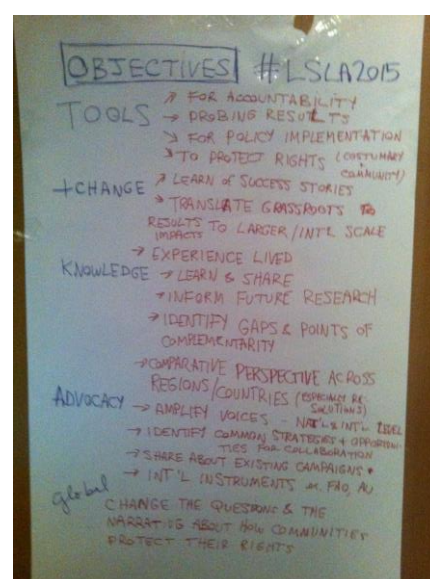 OBJECTIVES #LSLA2015
TOOLS ↗ FOR ACCOUNTABILITY
→ PROBING RESULTS
↘ FOR POLICY IMPLEMENTATION
↘ TO PROTECT RIGHTS (COSTUMARY + COMMUNITY)
+CHANGE ↗ LEARN of SUCCESS STORIES
↘ TRANSLATE GRASSROOTS TO
RESULTS TO LARGER/INT'L SCALE
IMPACTS
→ EXPERIENCE LIVED
KNOWLEDGE → LEARN & SHARE
→ INFORM FUTURE RESEARCH
→ IDENTIFY GAPS & POINTS OF
COMPLEMENTARITY
→ COMPARATIVE PERSPECTIVE ACROSS
REGIONS/COUNTRIES (ESPECIALLY RE SOLUTIONS)
ADVOCACY → AMPLIFY VOICES - NAT'L & INT'L LEVEL
→ IDENTIFY COMMON STRATEGIES + OPPORTUNI-
TIES FOR COLLABORATION
→ SHARE ABOUT EXISTING CAMPAIGNS •
→ INT'L INSTRUMENTS FAO, AU
global CHANGE THE QUESTIONS & THE
NARRATIVE ABOUT HOW COMMUNITIES
PROTECT THEIR RIGHTS